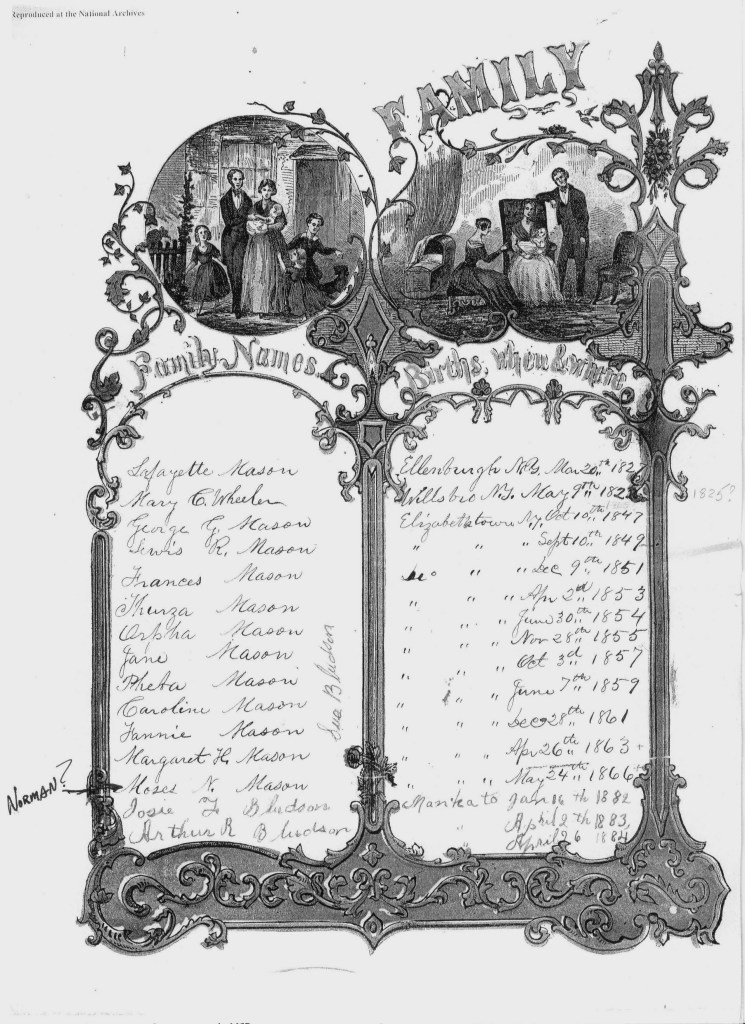 Reproduced at the National Archives
FAMILY
Family Names.
Births, when & where
Lafayette Mason
Ellenburgh N.Y. Mar 20th 182
Mary C. Wheeler
Willsbro N.Y. May 9th 182
1825?
George G. Mason
Elizabethtown N.Y. Oct 10th 1847
Lewis R. Mason
" " " Sept 10th 1849
Frances Mason
" " Dec 9th 1851
Thurza Mason
" " " Apr 2nd 1853
Orpha Mason
" " " June 30th 1854
Jane Mason
" " " Nov 28th 1855
Pheta Mason
" " Oct 3d 1857
Caroline Mason
" " " June 7th 1859
Fannie Mason
" " " Dec 28th 1861
Margaret H. Mason
" " " Apr 26th 1863
Moses N. Mason
" " " May 24th 1866
NORMAN?
Josie F Bludson
Mankato Jan 16th 1882
Arthur R Bludson
" April 2th 1883,
" April 26 1884
Bludson